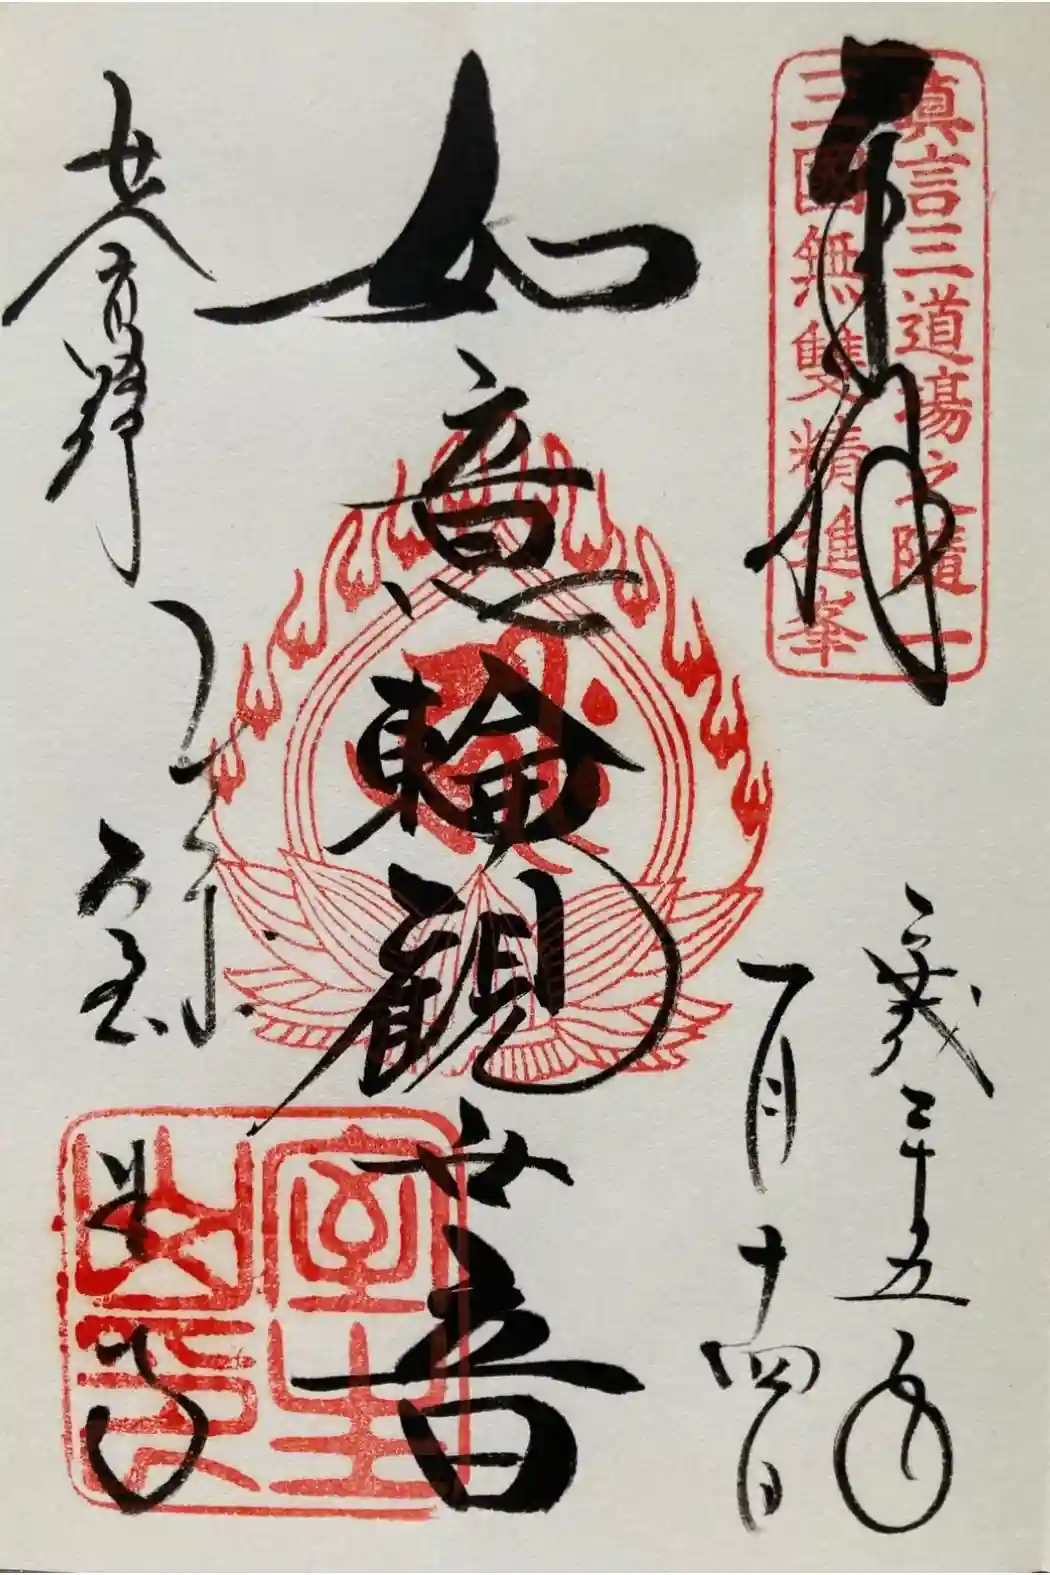 奉拝
真言三道場之隨一
三國無雙精進峯
平成二十五年
一月十四日
如意輪観世音
女人高野
室生寺
室生
山